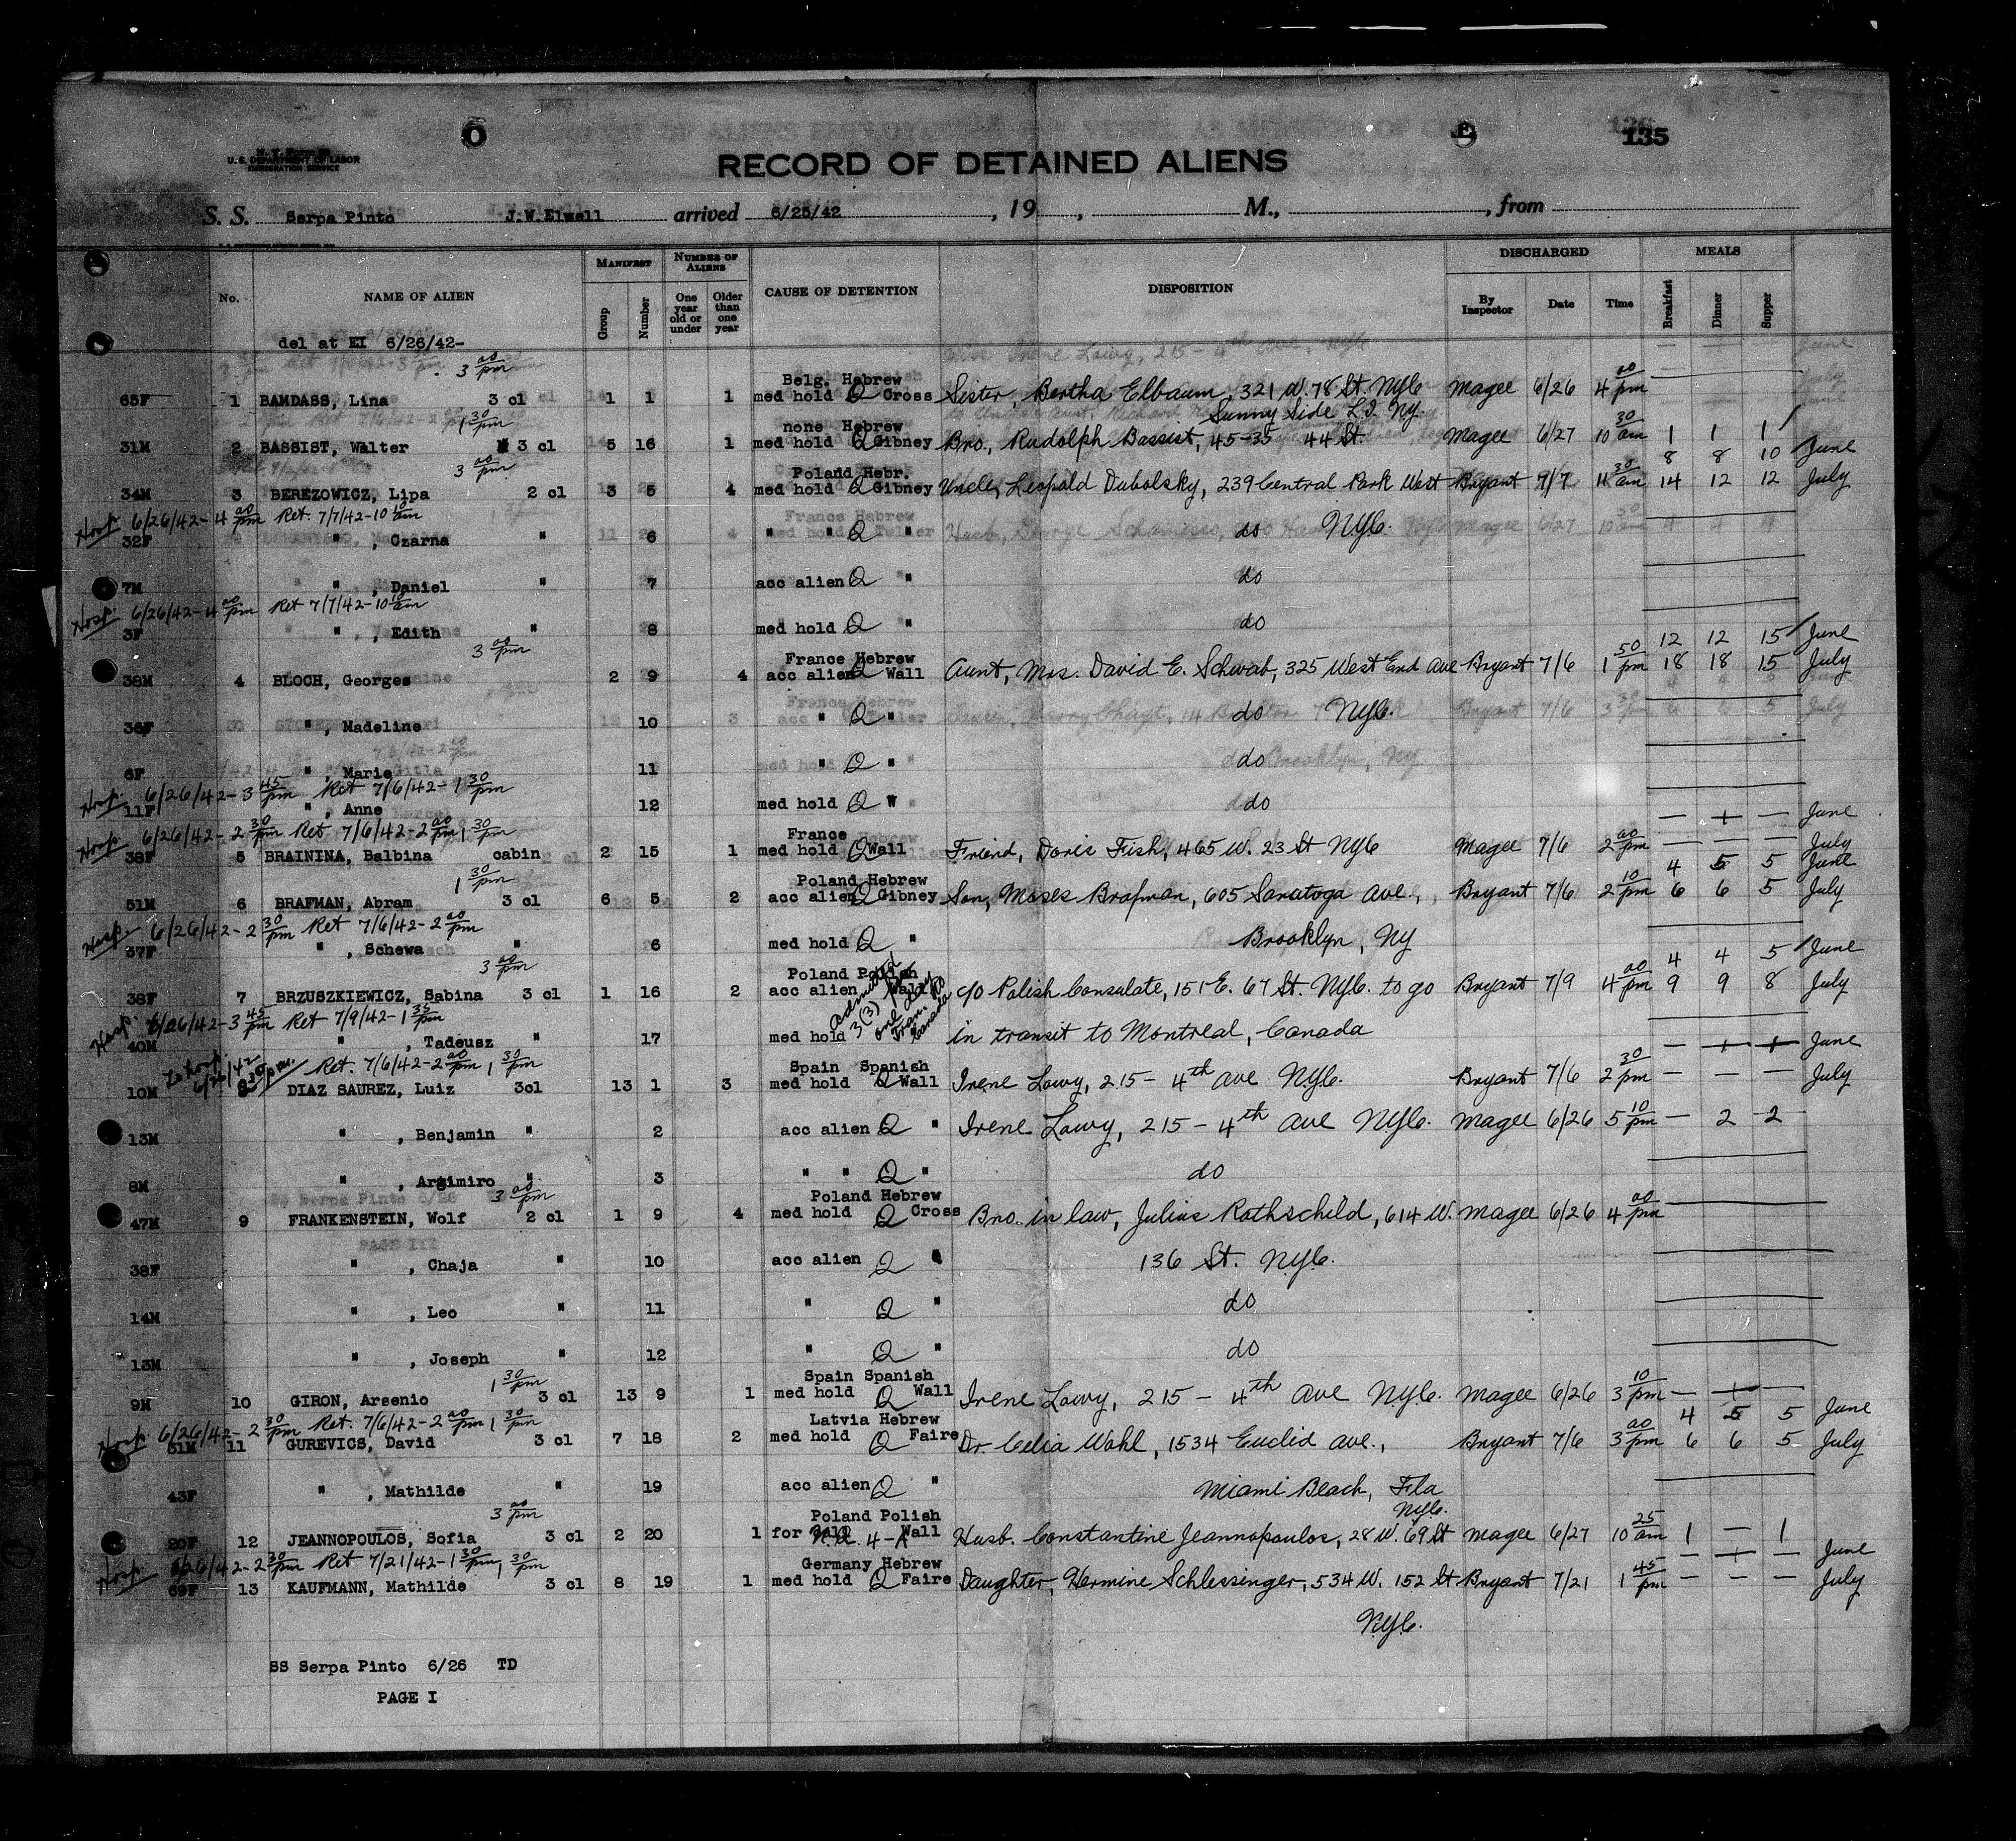 135
U. S. DEPARTMENT OF LABOR
IMMIGRATION SERVICE
RECORD OF DETAINED ALIENS
S. S. Serpa Pinto J.W.Elwall arrived 6/25/42 , 19 , M., , from
No. NAME OF ALIEN MANIFEST Group Number NUMBER OF ALIENS One year old or under Older than one year CAUSE OF DETENTION DISPOSITION DISCHARGED By Inspector Date Time MEALS Breakfast Dinner Supper
del at EI 6/26/42-
3 00 pm
Belg. Hebrew
65F 1 BAMDASS, Lina 3 cl 1 1 1 med hold Q Cross Sister, Bertha Elbaum, 321 W. 78 St NYC Magee 6/26 4 00 pm
1 30 pm none Hebrew Sunny Side L.I. Ny.
31M 2 BASSIST, Walter 3 cl 5 16 1 med hold Q Gibney Bro., Rudolph Bassist, 45-35 44 St. Magee 6/27 10 30 am 1 1 1
3 00 pm Poland Hebr. 8 8 10 June
34M 3 BEREZOWICZ, Lipa 2 cl 3 5 4 med hold Q Gibney Uncle, Leopold Dubolsky, 239 Central Park West Bryant 7/7 11 30 am 14 12 12 July
Hosp. 6/26/42-4 00 pm Ret. 7/7/42-10 10 am
32F " , Czarna " 6 " " Q " do NYC.
7M " , Daniel " 7 acc alien Q " do
Hosp. 6/26/42-4 00 pm Ret 7/7/42-10 10 am
3F " , Edith " 8 med hold Q " do
3 00 pm France Hebrew 12 12 15 June
38M 4 BLOCH, Georges 2 9 4 acc alien Q Wall Aunt, Mrs. David E. Schwab, 325 West End Ave Bryant 7/6 1 50 pm 18 18 15 July
36F " , Madeline 10 " Q " do NYC.
6F " , Marie 11 " Q " do
Hosp. 6/26/42-3 45 pm Ret 7/6/42-1 30 pm
11F " , Anne 12 med hold Q " do
Hosp. 6/26/42-2 30 pm Ret 7/6/42-2 00 pm 1 30 pm France — + — June
38F 5 BRAININA, Balbina cabin 2 15 1 med hold Q Wall Friend, Doris Fish, 465 W. 23 St NYC Magee 7/6 2 00 pm — — — July
1 30 pm Poland Hebrew 4 5 5 June
51M 6 BRAFMAN, Abram 3 cl 6 5 2 acc alien Q Gibney Son, Moses Brafman, 605 Saratoga Ave., Bryant 7/6 2 10 pm 6 6 5 July
Hosp. 6/26/42-2 30 pm Ret 7/6/42-2 00 pm
37F " , Schewa " 6 med hold Q " Brooklyn, Ny
3 00 pm Poland Polish 4 4 5 June
38F 7 BRZUSZKIEWICZ, Sabina 3 cl 1 16 2 acc alien Wall c/o Polish Consulate, 151 E. 67 St. NYC. to go Bryant 7/9 4 00 pm 9 9 8 July
Hosp. 6/26/42-3 45 pm Ret 7/9/42-1 35 pm admitted 3(3)
40M " , Tadeusz " 17 med hold in transit to Montreal, Canada
To hosp. 6/26/42 Ret. 7/6/42-2 00 pm 1 30 pm Spain Spanish — + + June
10M 8 DIAZ SAUREZ, Luiz 3cl 13 1 3 med hold Q Wall Irene Lowy, 215 - 4th Ave NYC. Bryant 7/6 2 30 pm — — — July
13M " , Benjamin " 2 acc alien Q " Irene Lowy, 215 - 4th Ave NYC. Magee 6/26 5 10 pm — 2 2
8M " , Argimiro " 3 " " Q " do
3 00 pm Poland Hebrew
47M 9 FRANKENSTEIN, Wolf 2 cl 1 9 4 med hold Q Cross Bro. in law, Julius Rothschild, 614 W. Magee 6/26 4 00 pm
38F " , Chaja " 10 acc alien Q " 136 St. NYC.
14M " , Leo " 11 " Q " do
13M " , Joseph " 12 " Q " do
1 30 pm Spain Spanish
9M 10 GIRON, Arsenio 3 cl 13 9 1 med hold Q Wall Irene Lowy, 215 - 4th Ave NYC. Magee 6/26 3 10 pm — + —
Hosp. 6/26/42-2 30 pm Ret. 7/6/42-2 00 pm 1 30 pm Latvia Hebrew 4 5 5 June
51M 11 GUREVICS, David 3 cl 7 18 2 med hold Q Faire Dr. Celia Wahl, 1534 Euclid Ave., Bryant 7/6 3 00 pm 6 6 5 July
43F " , Mathilde " 19 acc alien Q " Miami Beach, Fla
3 00 pm Poland Polish NYC.
20F 12 JEANNOPOULOS, Sofia 3 cl 2 20 1 for 4-A Wall Husb. Constantine Jeannopoulos, 28 W. 69 St Magee 6/27 10 25 am 1 — 1
Hosp. 6/26/42-2 30 pm Ret 7/21/42-1 30 pm, 1 30 pm Germany Hebrew — + — June
69F 13 KAUFMANN, Mathilde 3 cl 8 19 1 med hold Q Faire Daughter, Hermine Schlessinger, 534 W. 152 St Bryant 7/21 1 45 pm — — — July
NYC.
SS Serpa Pinto 6/26 TD
PAGE I